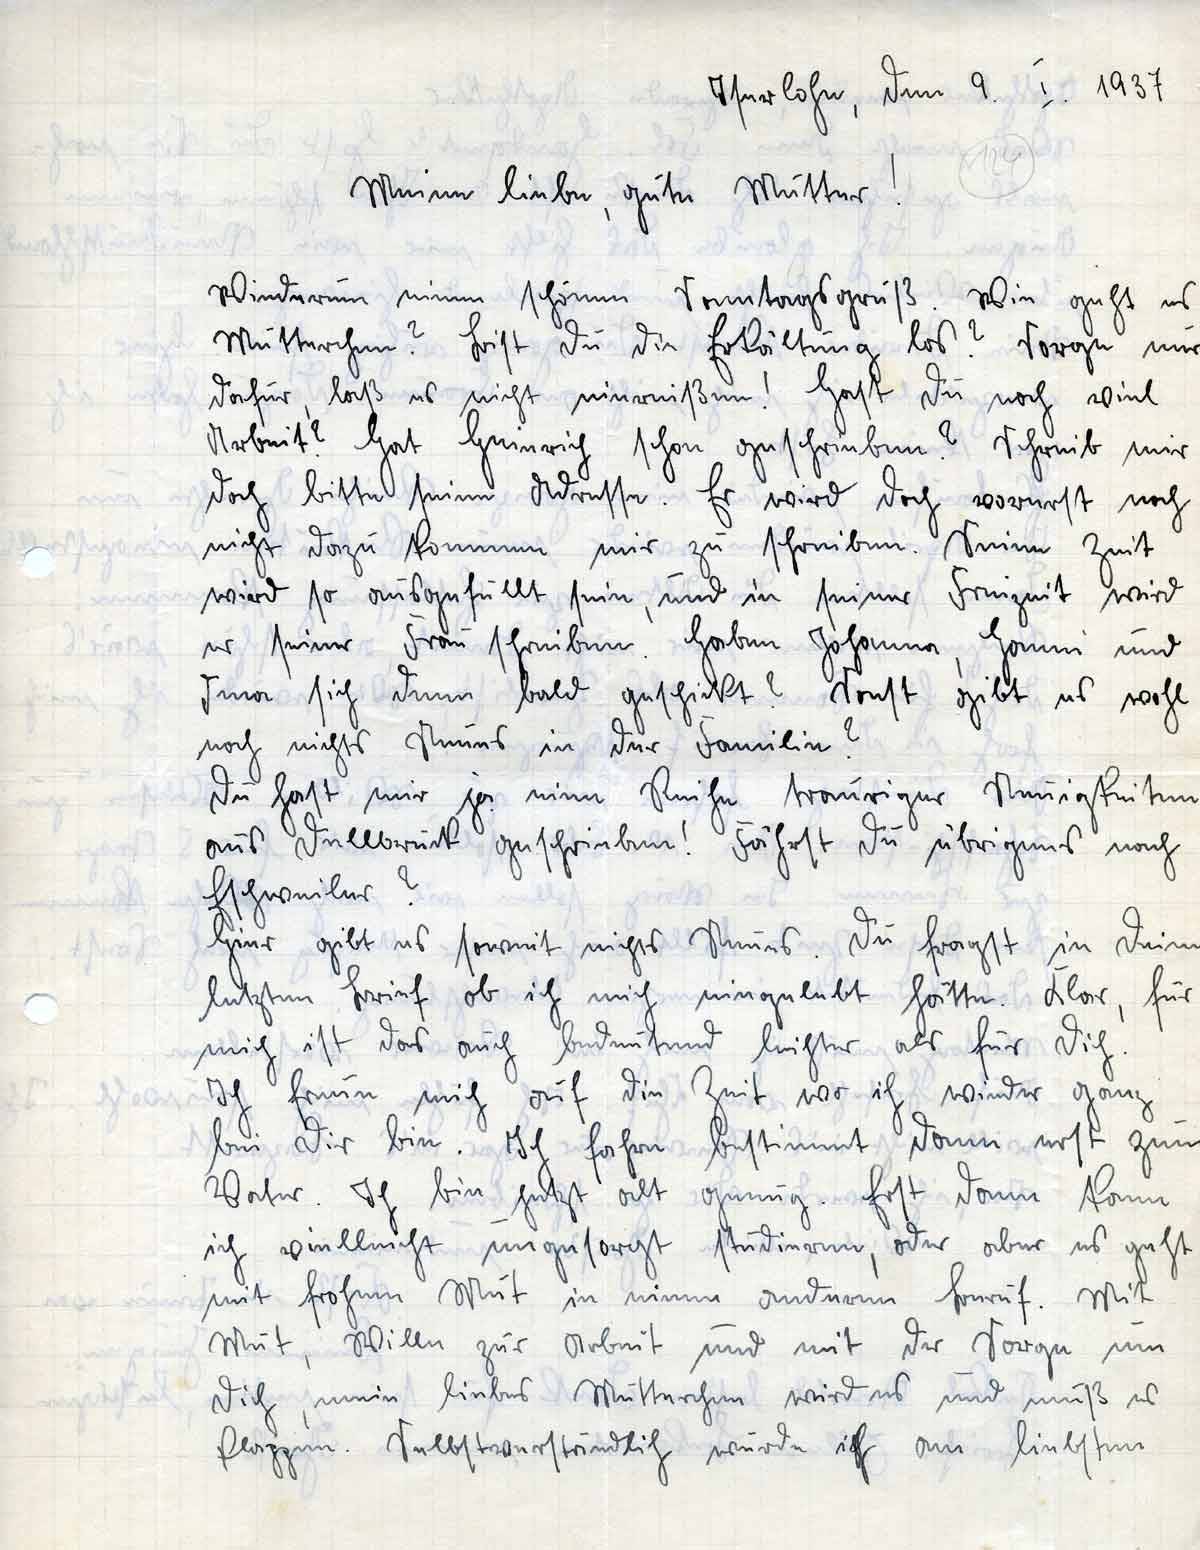 Iserlohn, den 9. I. 1937
124
Meine liebe, gute Mutter!
Wiederum einen schönen Sonntagsgruß. Wie geht es
Mutterchen? Bist Du die Erkältung los? Sorge nur
dafür, laß es nicht einreißen! Hast Du noch viel
Arbeit? Hat Heinrich schon geschrieben? Schreib mir
doch bitte seine Adresse. Er wird doch vorerst noch
nicht dazu kommen mir zu schreiben. Seine Zeit
wird so ausgefüllt sein, und in seiner Freizeit wird
er seiner Frau schreiben. Haben Johanna, Hanni und
Irma sich denn bald geschickt? Sonst gibt es wohl
noch nichts Neues in der Familie?
Du hast mir ja eine Reihe trauriger Neuigkeiten
aus Dellbrück geschrieben! Fährst Du übrigens nach
Eschweiler?
Hier gibt es soweit nichts Neues. Du fragst in Deinem
letzten Brief ob ich mich eingelebt hätte. Klar, für
mich ist das auch bedeutend leichter als für Dich.
Ich freue mich auf die Zeit wo ich wieder ganz
bei Dir bin. Ich fahre bestimmt dann erst zum
Vater. Ich bin jetzt alt genug. Erst dann kann
ich vielleicht ungesorgt studieren, oder aber es geht
mit frohem Mut in einen anderen Beruf. Mit
Mut, Wille zur Arbeit und mit der Sorge um
Dich, mein liebes Mutterchen wird es und muß es
klappen. Selbstverständlich würde ich am liebsten